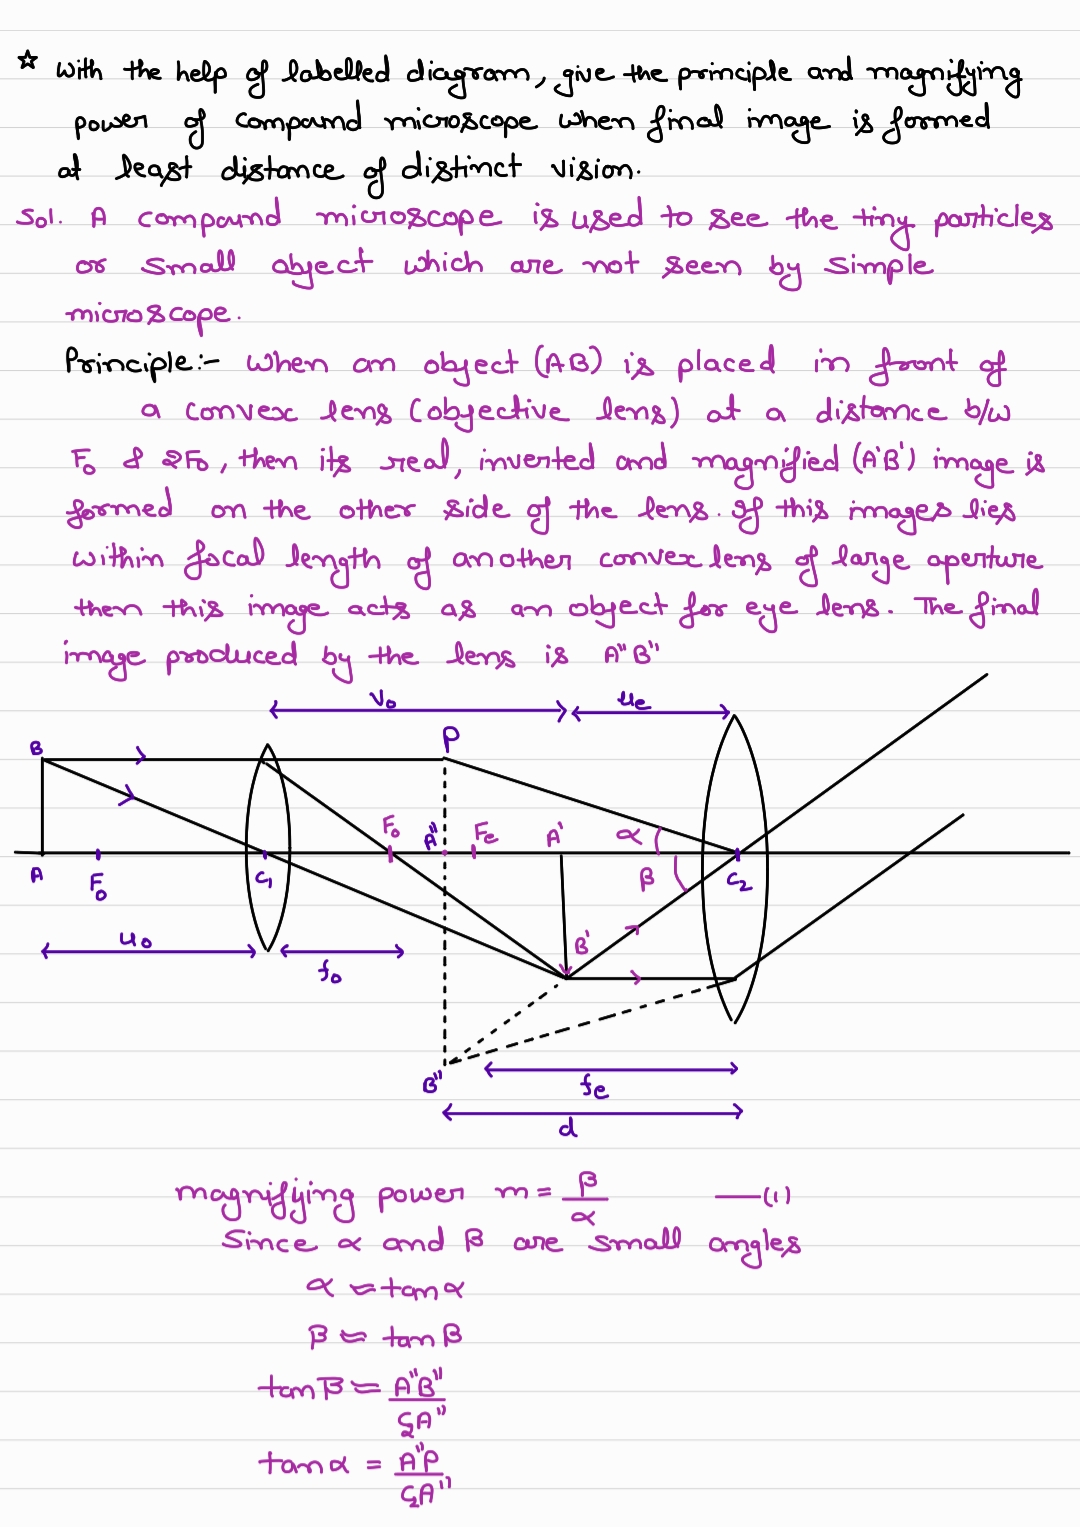 ☆ With the help of labelled diagram, give the principle and magnifying
power of compound microscope when final image is formed
at least distance of distinct vision.
Sol. A compound microscope is used to see the tiny particles
or small object which are not seen by simple
microscope.
Principle:- When an object (AB) is placed in front of
a convex lens (objective lens) at a distance b/w
F₀ & 2F₀, then its real, inverted and magnified (A'B') image is
formed on the other side of the lens. If this images lies
within focal length of another convex lens of large aperture
then this image acts as an object for eye lens. The final
image produced by the lens is A"B"
V₀ uₑ
B P
F₀ A" Fₑ A' α
A F₀ C₁ β C₂
u₀ f₀ B'
B" fₑ
d
magnifying power m = β/α —(1)
Since α and β are small angles
α ≈ tan α
β ≈ tan β
tan β ≈ A"B"/C₂A"
tan α = A"P/C₂A"